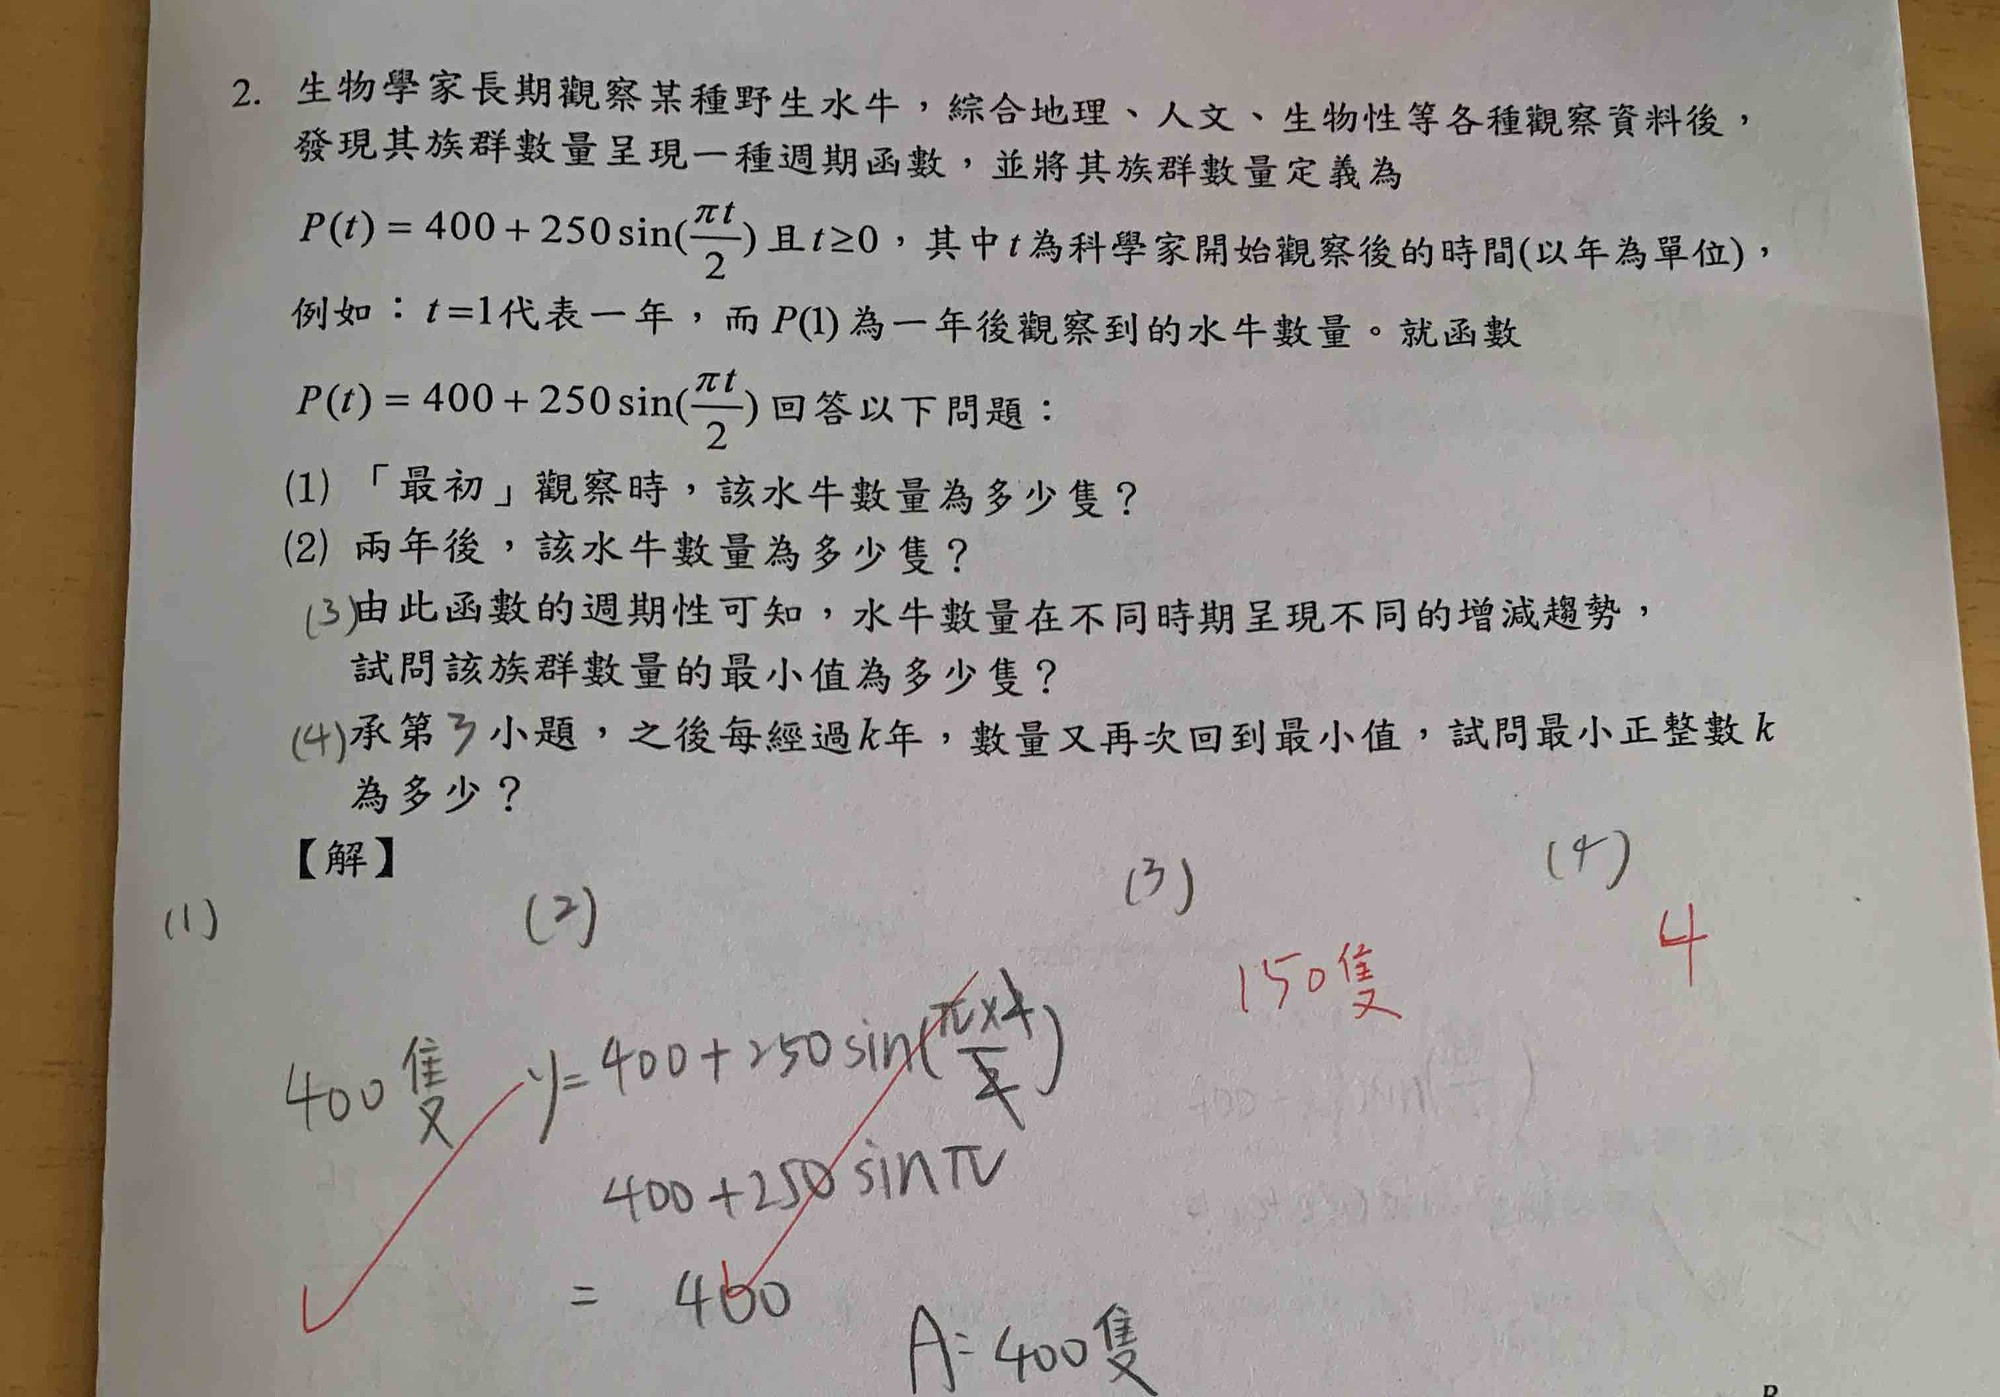 2. 生物學家長期觀察某種野生水牛，綜合地理、人文、生物性等各種觀察資料後，
發現其族群數量呈現一種週期函數，並將其族群數量定義為
P(t) = 400 + 250 sin(πt/2) 且 t≥0，其中 t 為科學家開始觀察後的時間(以年為單位)，
例如：t=1代表一年，而 P(1) 為一年後觀察到的水牛數量。就函數
P(t) = 400 + 250 sin(πt/2) 回答以下問題：
(1) 「最初」觀察時，該水牛數量為多少隻？
(2) 兩年後，該水牛數量為多少隻？
(3)由此函數的週期性可知，水牛數量在不同時期呈現不同的增減趨勢，
試問該族群數量的最小值為多少隻？
(4)承第3小題，之後每經過k年，數量又再次回到最小值，試問最小正整數 k
為多少？
【解】
(1) (2) (3) (4)
4
150隻
400隻 y=400+250sin(
400+250sinπ
= 400
A=400隻